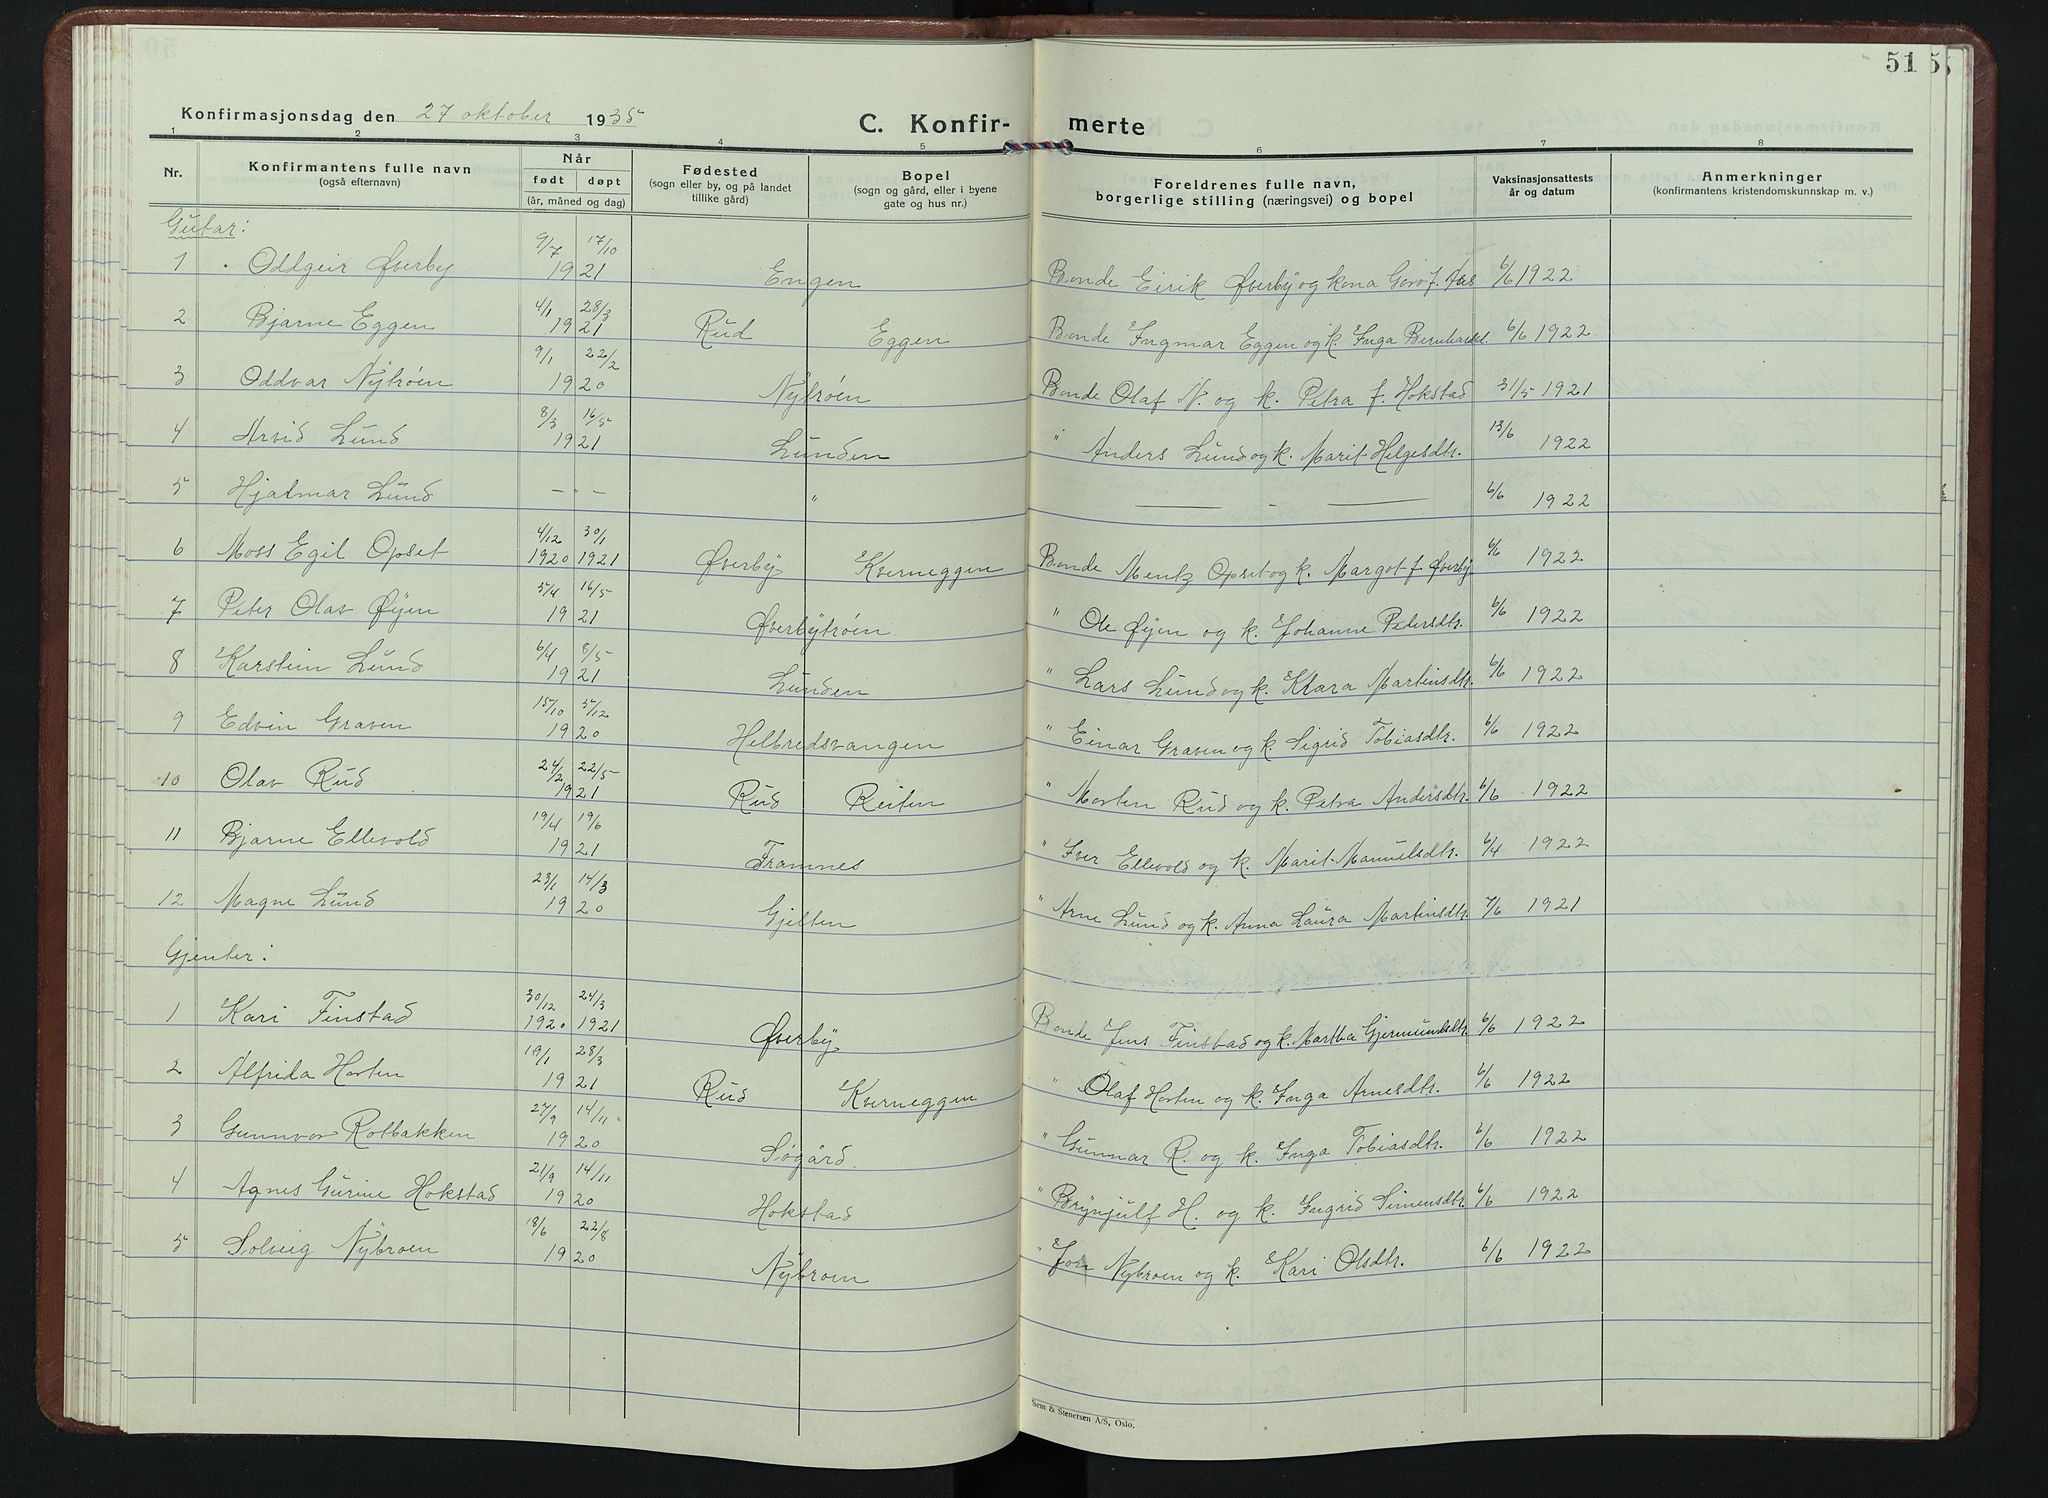 51
Konfirmasjonsdag den 27 oktober 1935
C. Konfir- merte
1 2 3 4 5 6 7 8
Nr. Konfirmantens fulle navn (også efternavn) Når født døpt (år, måned og dag) Fødested (sogn eller by, og på landet tillike gård) Bopel (sogn og gård, eller i byene gate og hus nr.) Foreldrenes fulle navn, borgerlige stilling (næringsvei) og bopel Vaksinasjonsattests år og datum Anmerkninger (konfirmantens kristendomskunnskap m. v.)
Gutar:
1 Oddgeir Øverby 9/7 17/10 1921 Engen Bonde Eirik Øverby og kona Goro f. Aas 6/6 1922
2 Bjarne Eggen 4/1 28/3 1921 Rud Eggen Bonde Ingmar Eggen og k. Inga Bernhardsd. 6/6 1922
3 Oddvar Nybrøen 9/1 22/2 1920 Nybrøen Bonde Olaf N. og k. Petra f. Hokstad 31/5 1921
4 Arvid Lund 8/3 16/5 1921 Lunden " Anders Lund og k. Marit Helgesdtr. 13/6 1922
5 Hjalmar Lund — " — " — - — 6/6 1922
6 Moss Egil Opset 4/12 1920 30/1 1921 Øverby Kverneggen Bonde Mentz Opset og k. Margot f. Øverby 6/6 1922
7 Peter Olav Øyen 5/4 16/5 1921 Øverbytrøen " Ole Øyen og k. Johanne Pedersdtr. 6/6 1922
8 Karstein Lund 6/4 8/5 1921 Lunden " Lars Lund og k. Klara Martinsdtr. 6/6 1922
9 Edvin Graven 15/10 5/12 1920 Helbredsvangen " Einar Graven og k. Sigrid Tobiasdtr. 6/6 1922
10 Olav Rud 24/2 22/5 1921 Rud Reiten " Morten Rud og k. Petra Andersdtr. 6/6 1922
11 Bjarne Ellevold 19/4 19/6 1921 Framnes " Iver Ellevold og k. Marit Manuelsdtr. 6/4 1922
12 Magne Lund 23/1 14/3 1920 Gjelten " Arne Lund og k. Anna Laura Martinsdtr. 7/6 1921
Gjenter:
1 Kari Finstad 30/12 1920 24/3 1921 Øverby Bonde Jens Finstad og k. Martha Gjermundsdtr. 6/6 1922
2 Alfrida Horten 19/1 28/3 1921 Rud Kverneggen " Olaf Horten og k. Inga Arnesdtr. 6/6 1922
3 Gunnvor Rolbakken 27/9 14/11 1920 Søgård. " Gunnar R. og k. Inga Tobiasdtr. 6/6 1922
4 Agnes Gurine Hokstad 21/9 14/11 1920 Hokstad " Brynjulf H. og k. Ingrid Simensdtr. 6/6 1922
5 Solveig Nybroen 18/6 22/8 1920 Nybroen " Jon Nybroen og k. Kari Olsdtr. 6/6 1922
Sem & Stenersen A/S, Oslo.